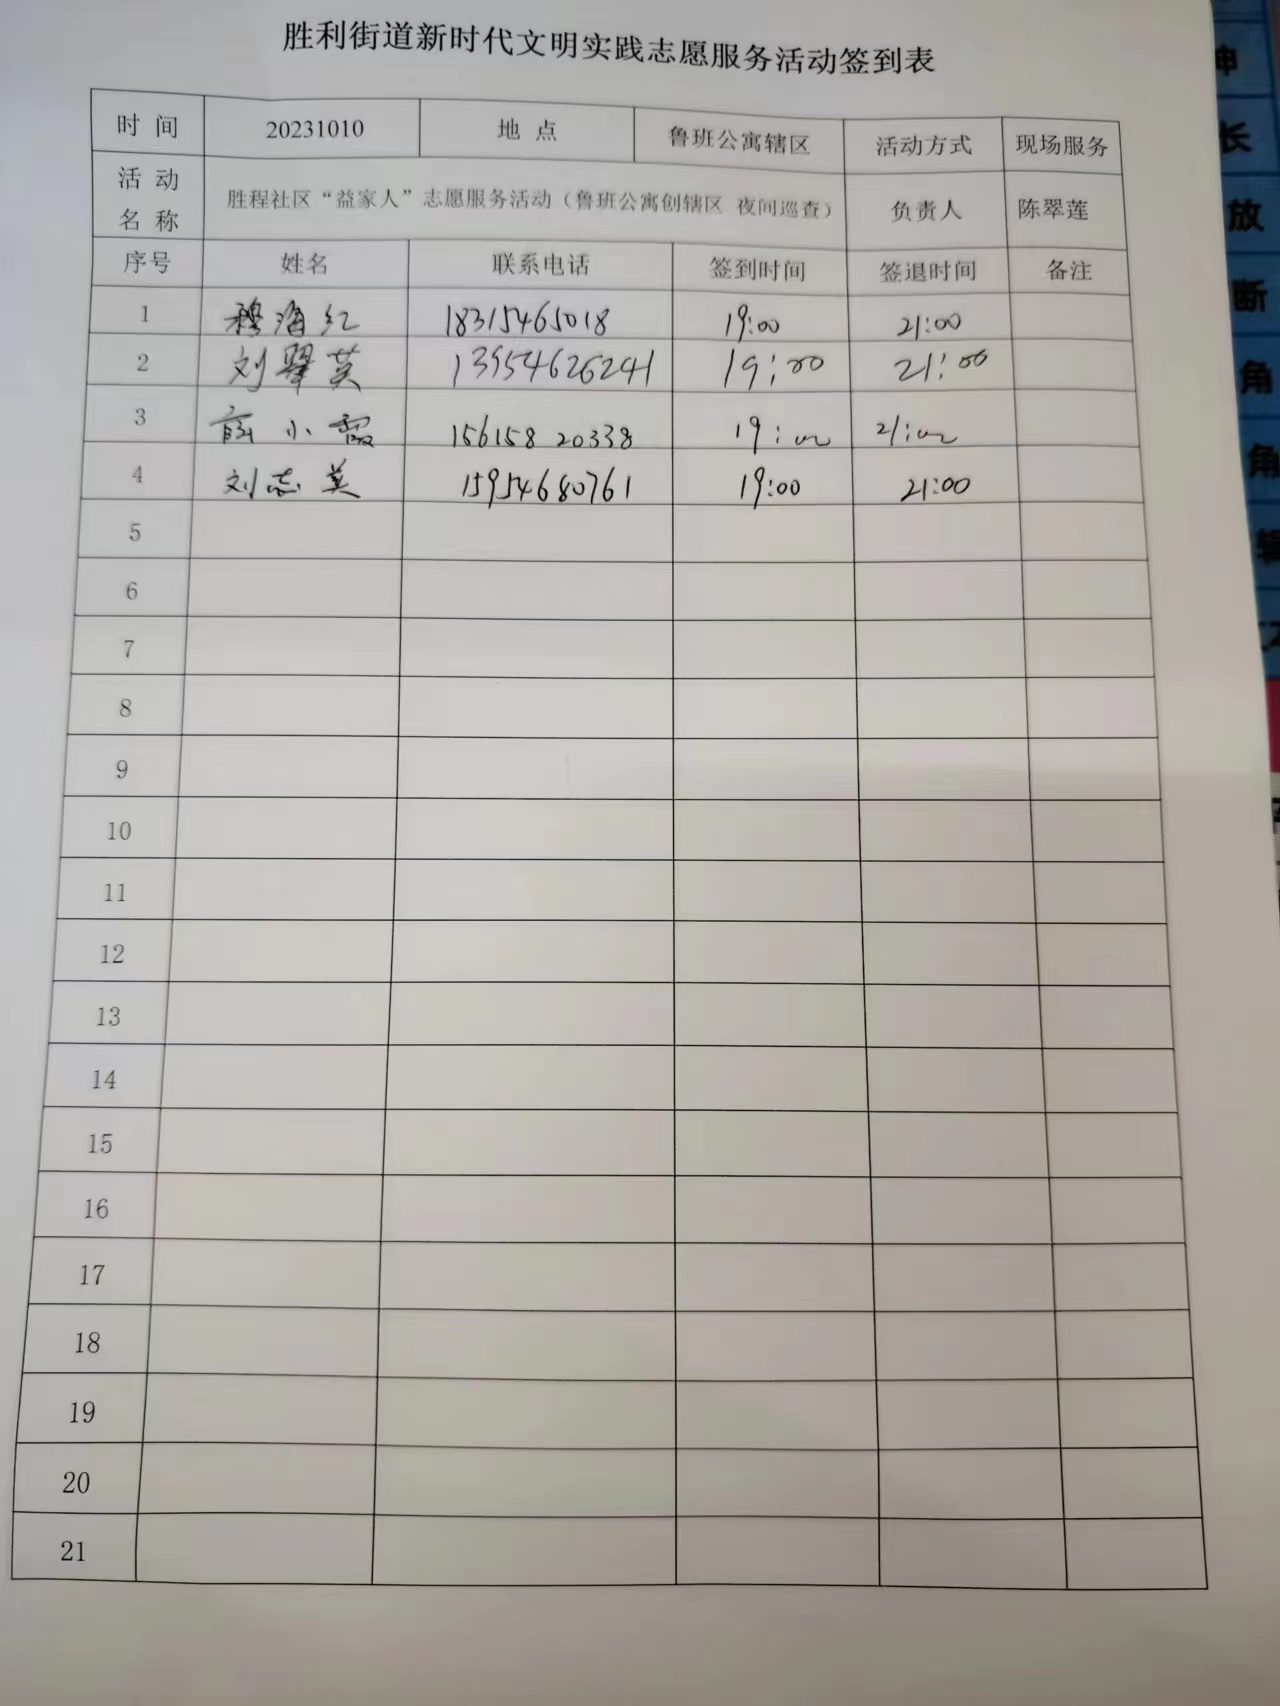 胜利街道新时代文明实践志愿服务活动签到表
时 间 20231010 地 点 鲁班公寓辖区 活动方式 现场服务
活 动 名 称 胜程社区“益家人”志愿服务活动（鲁班公寓创辖区 夜间巡查） 负责人 陈翠莲
序号 姓名 联系电话 签到时间 签退时间 备注
1 穆海红 18315465018 19:00 21:00
2 刘翠英 13954626241 19:00 21:00
3 小霞 156158 20338 19:00 21:00
4 刘志英 15954680761 19:00 21:00
5
6
7
8
9
10
11
12
13
14
15
16
17
18
19
20
21
长
放
断
角
角